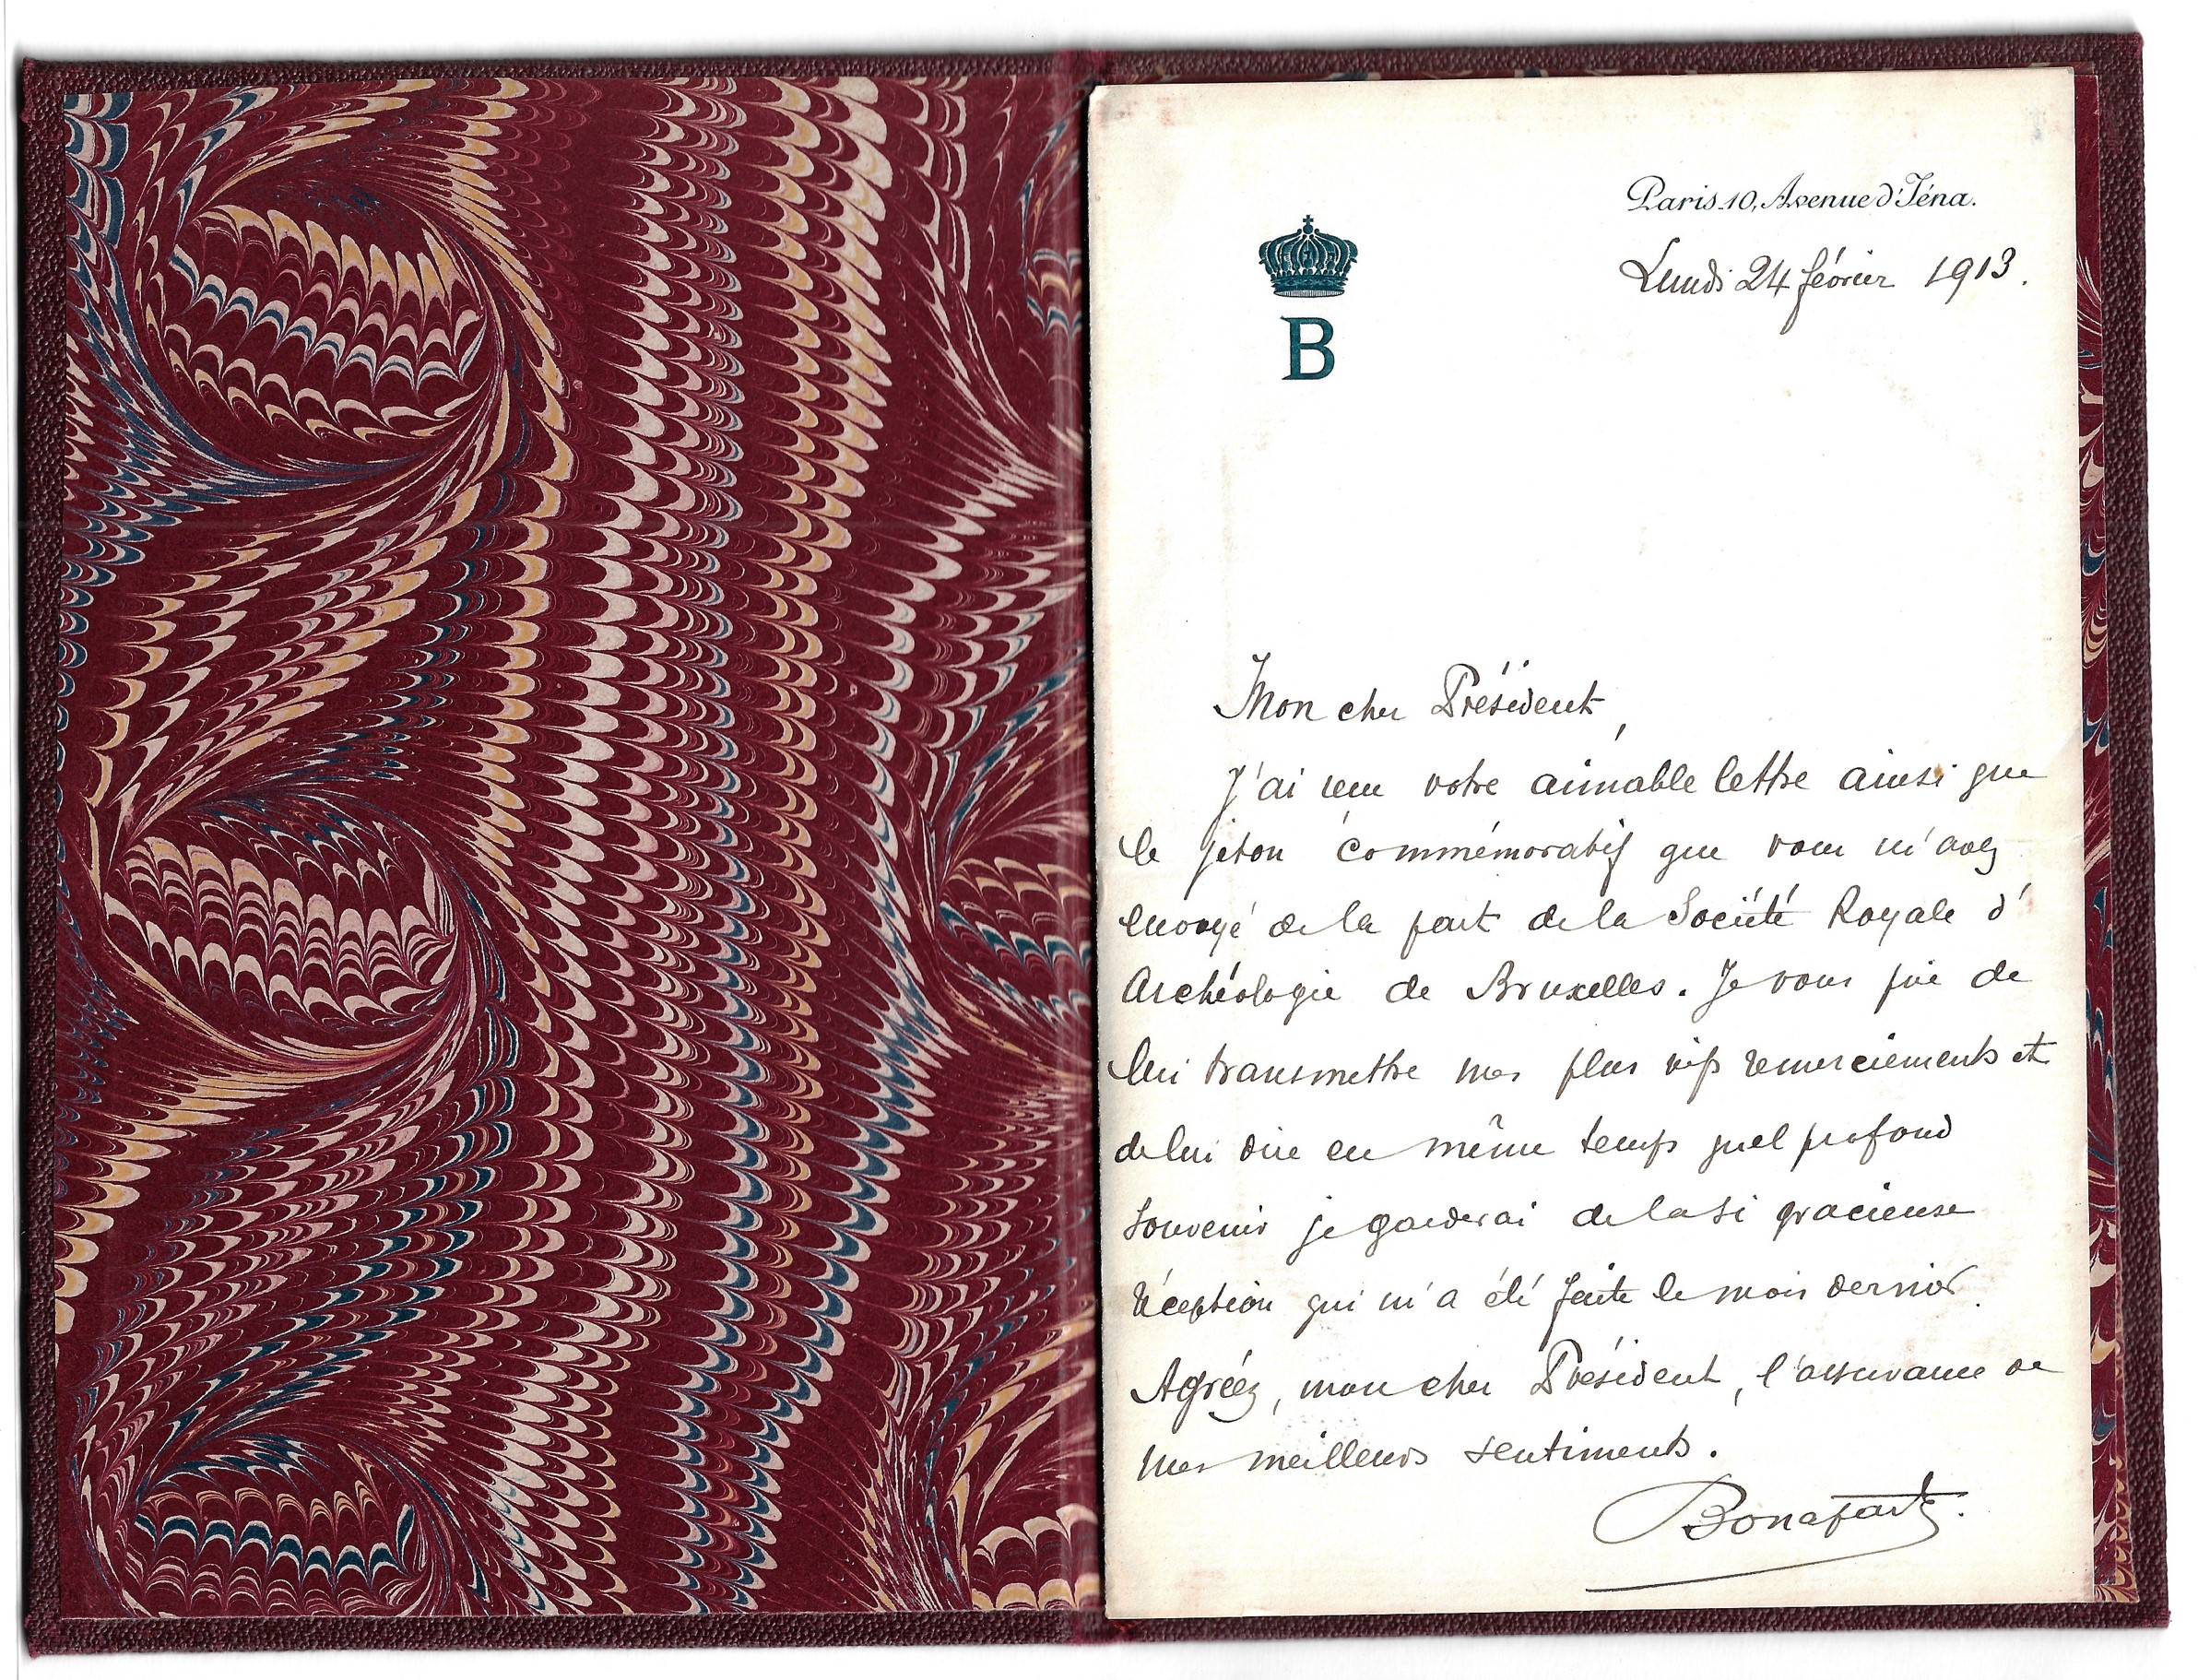 Paris 10, Avenue d'Iéna.
Lundi 24 février 1913.
B
Mon cher Président,
J'ai reçu votre aimable lettre ainsi que
le jeton commémoratif que vous m'avez
envoyé de la part de la Société Royale d'
Archéologie de Bruxelles. Je vous prie de
lui transmettre mes plus vifs remerciements et
de lui dire en même temps quel profond
souvenir je garderai de la si gracieuse
réception qui m'a été faite le mois dernier.
Agréez, mon cher Président, l'assurance de
mes meilleurs sentiments.
Bonaparte.